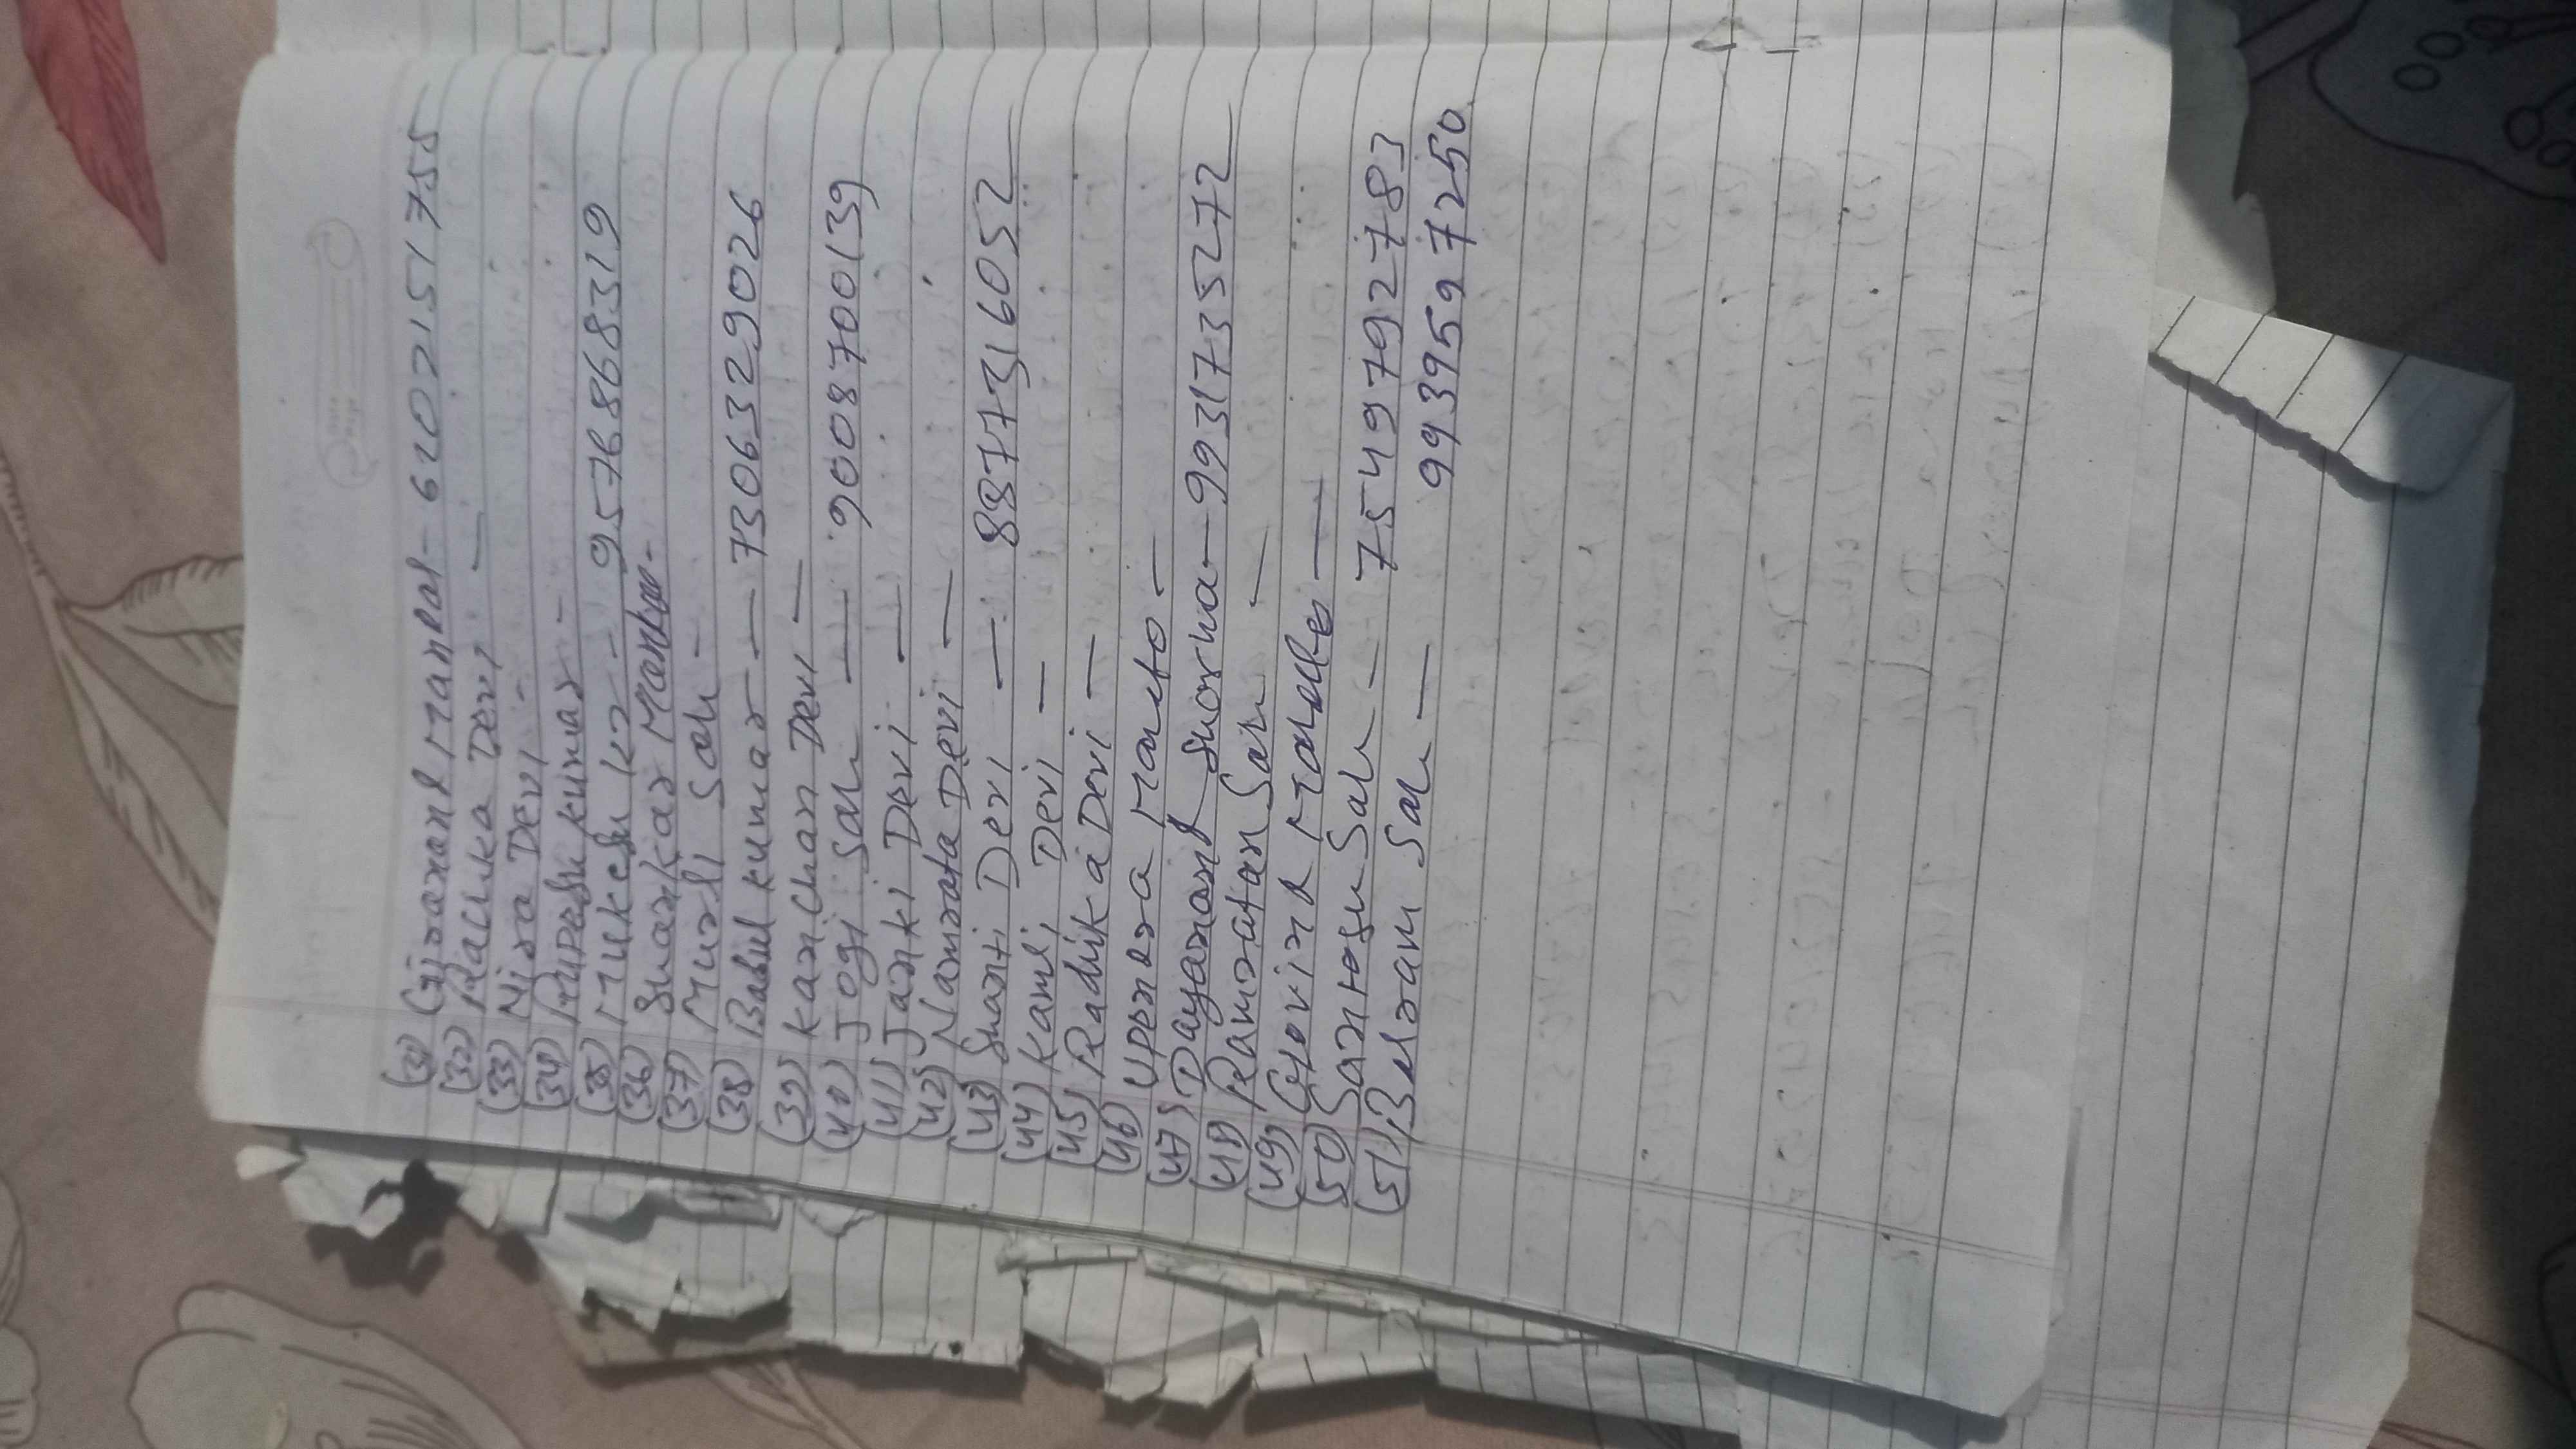 (31) Giranand Mandal - 6202151755
(32) Rachka Devi -
(33) Nira Devi -
(34) Rupesh kumar -
(35) Mukesh kr - 9576868319
(36) Shankar Mandal -
(37) Murli Sah -
(38) Babul kumar - 7306329026
(39) kanchan Devi -
(40) Jogi Sah - 9008700139
(41) Janki Devi -
(42) Namrata Devi -
(43) Shanti Devi - 8877316052
(44) Kamli Devi -
(45) Radhika Devi -
(46) Upendra Mahto -
(47) Dayanand Sharma - 9931735272
(48) Ramratan Sah -
(49) Govind Mandal -
(50) Santosh Sah - 7549792783
(51) Balram Sah - 9939597250